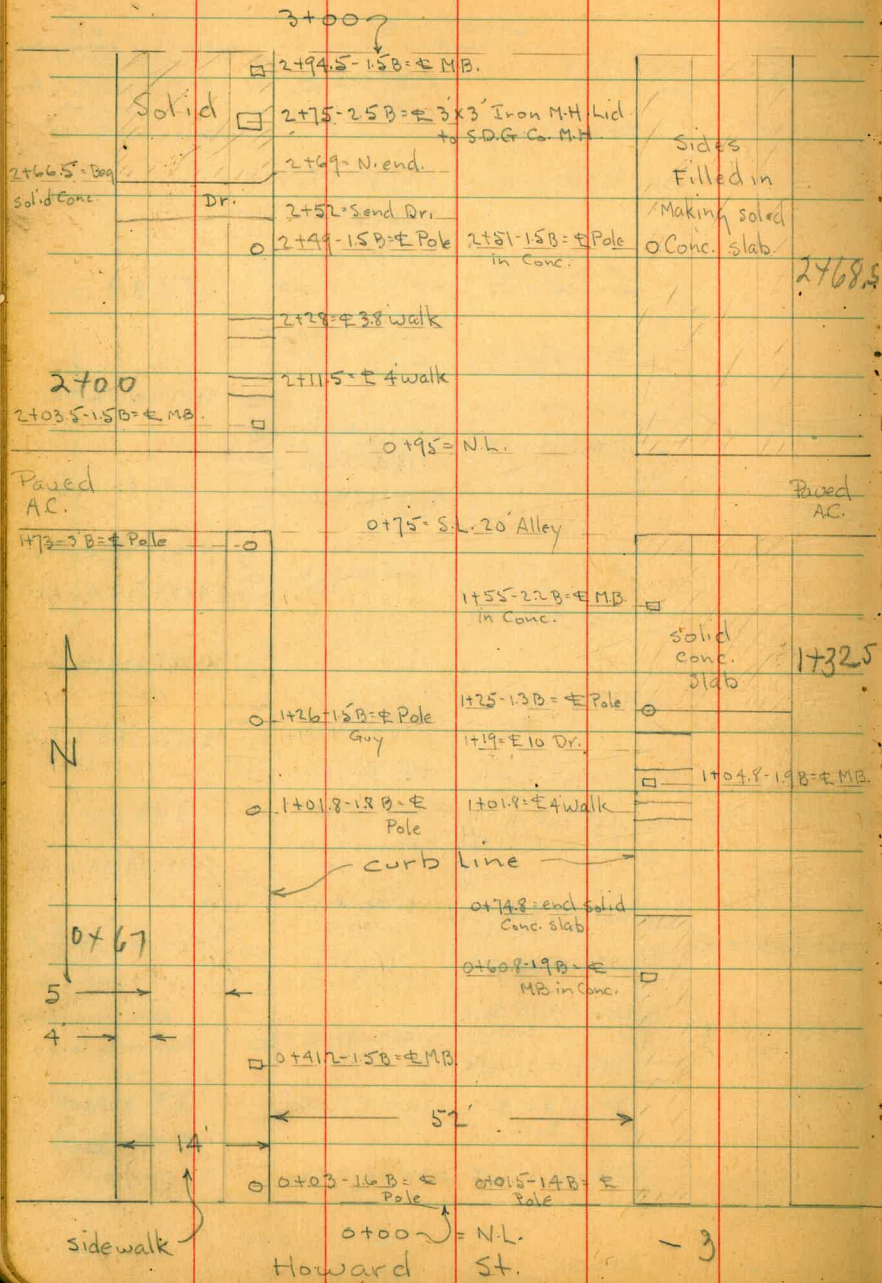 3+00
2+94.5-1.5B=℄ M.B.
Solid
2+75-2.5B=℄ 3'x3' Iron M.H. Lid
to S.D.G Co. M.H.
2+69=N. end.
2+66.5=Beg
Solid Conc.
Dr.
2+52=S end Dr.
2+49-1.5B=℄ Pole
2+51-1.5B=℄ Pole
in Conc.
Sides
Filled in
Making soled
Conc. slab.
2+68.5
2+28=℄ 3.8 walk
2+00
2+11.5=℄ 4' walk
2+03.5-1.5B=℄ M.B.
0+95=N.L.
Paved
A.C.
Paved
A.C.
0+75=S.L. 20' Alley
1+73-3'B=℄ Pole
1+55-2.2B=℄ M.B.
in Conc.
Solid
Conc.
Slab
1+32.5
1+26-1.5B=℄ Pole
Guy
1+25-1.3B=℄ Pole
N
1+19=℄ 10 Dr.
1+04.8-1.9B=℄ M.B.
1+01.8-1.8B=℄
Pole
1+01.8=℄ 4' walk
curb Line
0+74.8=end solid
Conc. slab
0+67
0+60.8-1.9B=℄
MB in Conc.
5'
4'
0+41.2-1.5B=℄ M.B.
52'
14'
0+03-1.6B=℄
Pole
0+01.5-1.4B=℄
Pole
sidewalk
0+00=N.L.
Howard St.
-3